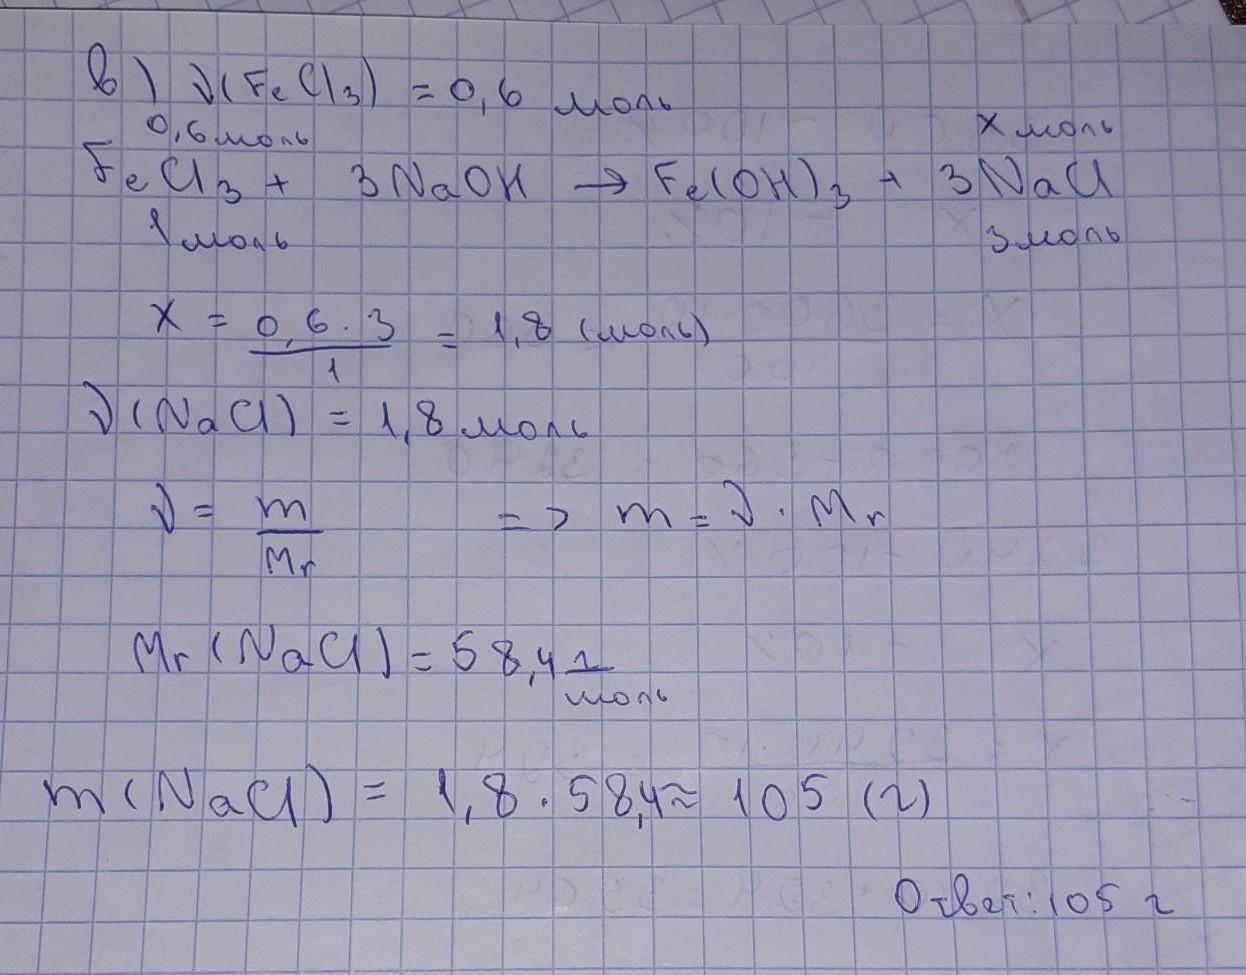 в) ν(FeCl₃) = 0,6 моль
0,6 моль x моль
FeCl₃ + 3NaOH → Fe(OH)₃ + 3NaCl
1 моль 3 моль
x = 0,6 · 3 / 1 = 1,8 (моль)
ν(NaCl) = 1,8 моль
ν = m / Mr => m = ν · Mr
Mr(NaCl) = 58,4 г/моль
m(NaCl) = 1,8 · 58,4 ≈ 105 (г)
Ответ: 105 г